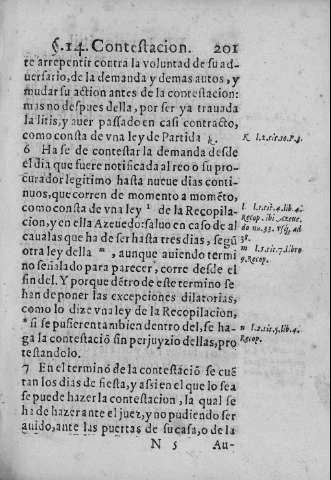 §.14. Contestacion. 201
te arrepentir contra la voluntad de su ad-
uersario, de la demanda y demas autos, y
mudar su action antes de la contestacion:
mas no despues della, por ser ya trauada
la litis, y auer passado en casi contracto,
como consta de vna ley de Partida k.
k l.2.tit.10.P.3.
6 Hase de contestar la demanda desde
el dia que fuere notificada al reo o su pro
curador legitimo hasta nueue dias conti-
nuos, que corren de momento a momẽto,
como consta de vna ley l de la Recopila-
cion, y en ella Azeuedo: saluo en caso de al
caualas que ha de ser hasta tres dias, segũ
otra ley della m, aunque auiendo termi
no señalado para parecer, corre desde el
fin del. Y porque dẽtro de este termino se
han de poner las excepciones dilatorias,
como lo dize vna ley de la Recopilacion,
n si se pusieren tambien dentro del, se ha-
ga la contestació sin perjuyzio dellas, pro
testandolo.
l l.1.tit.4.lib.4.
Recop. ibi Azeue.
do nu.33. vsq; ad
38.
m l.1.tit.7.libro
9.Recop.
n l.1.tit.5.lib.4.
Recop.
7 En el termino de la contestació se cuẽ
tan los dias de fiesta, y assi en el que lo sea
se puede hazer la contestacion, la qual se
ha de hazer ante el juez, y no pudiendo ser
auido, ante las puertas de su casa, o de la
N 5 Au-